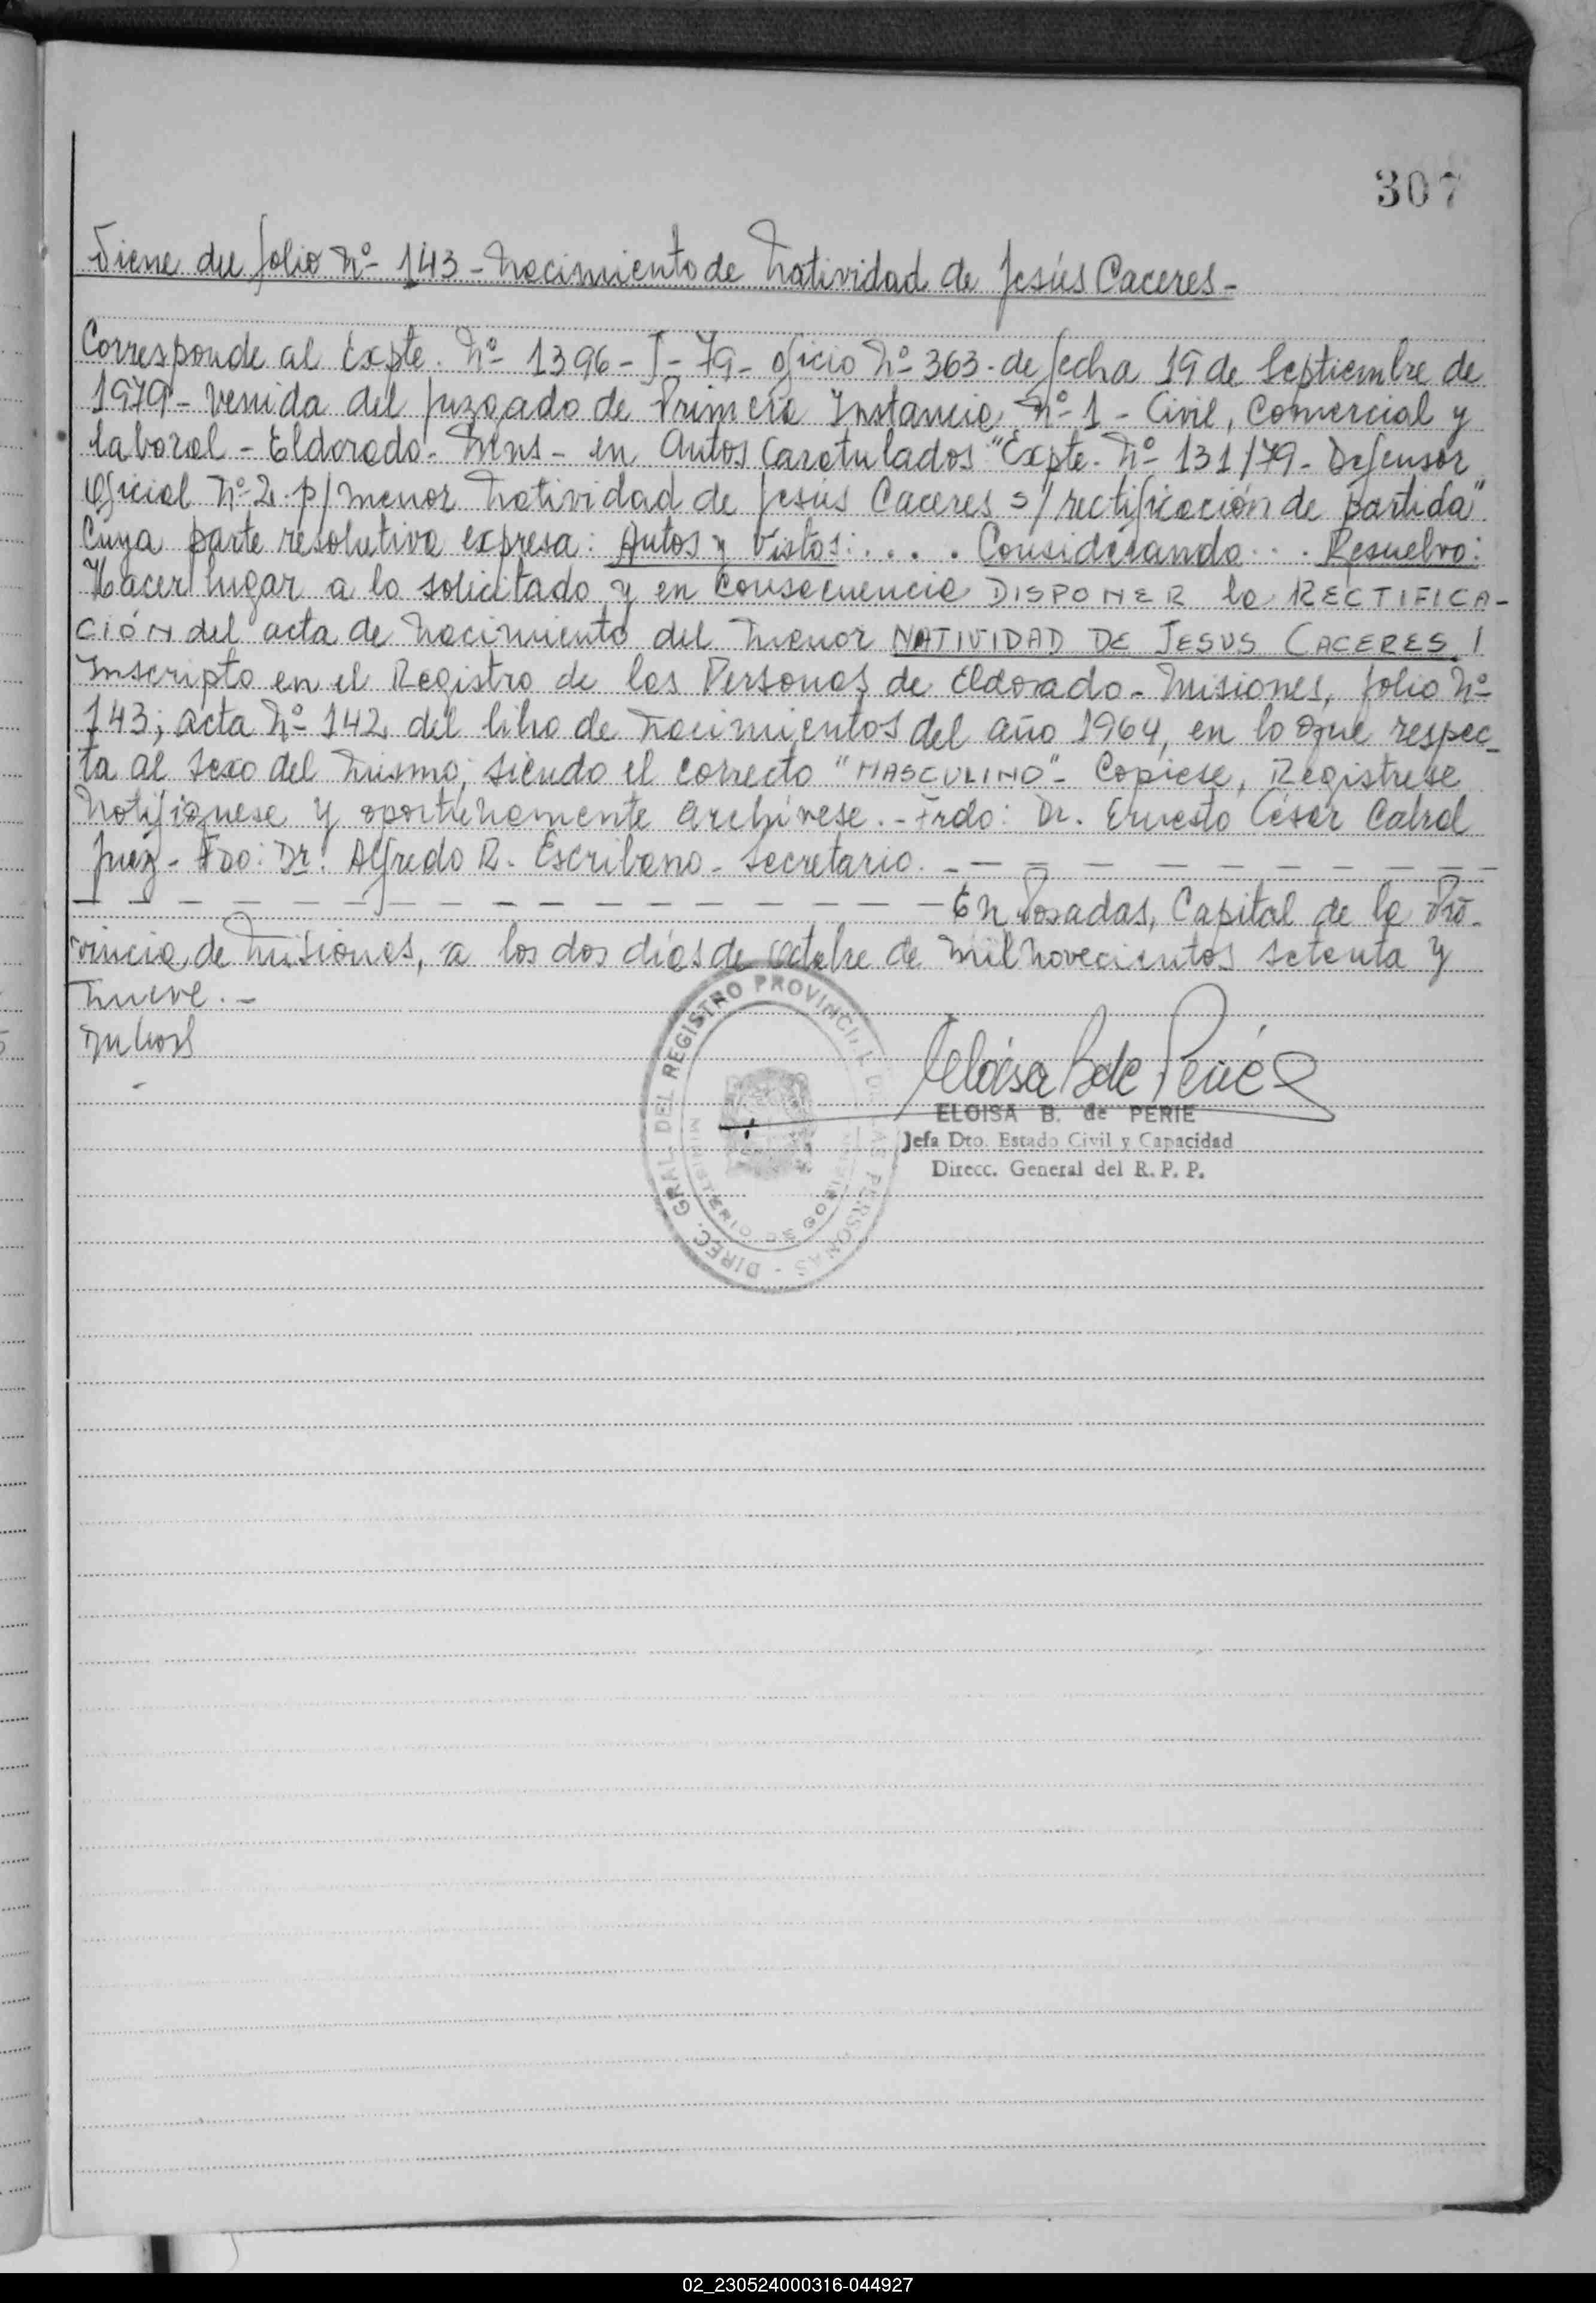 307
Viene del folio Nº 143 - Nacimiento de Natividad de Jesús Caceres -
Corresponde al Expte. Nº 1396 - I - 79 - oficio Nº 363 - de fecha 19 de Septiembre de
1979 - venida del Juzgado de Primera Instancia Nº 1 - Civil, Comercial y
laboral - Eldorado - Mns - en Autos Caratulados "Expte. Nº 131/79 - Defensor
Oficial Nº 2 - p/ menor Natividad de Jesús Caceres s/ rectificación de partida"
Cuya parte resolutiva expresa: Autos y Vistos: . . . . Considerando . . . Resuelvo:
Hacer lugar a lo solicitado y en Consecuencia DISPONER la RECTIFICA-
CIÓN del acta de Nacimiento del menor NATIVIDAD DE JESUS CACERES,
Inscripto en el Registro de las Personas de Eldorado - Misiones, folio Nº
143; acta Nº 142 del libro de Nacimientos del año 1964, en lo que respec-
ta al sexo del mismo, siendo el correcto "MASCULINO" - Copiese, Registrese
Notifiquese y oportunamente archívese. - Frdo: Dr. Ernesto César Cabral
Juez - Fdo: Dr. Alfredo R. Escribano - Secretario. -
En Posadas, Capital de la Pro-
vincia de Misiones, a los dos días de octubre de mil novecientos setenta y
nueve. -
DIREC. GRAL. DEL REGISTRO PROVINCIAL DE LAS PERSONAS -
MINISTERIO DE GOBIERNO
Eloisa B de Perié
ELOISA B. de PERIE
Jefa Dto. Estado Civil y Capacidad
Direcc. General del R. P. P.
02_230524000316-044927